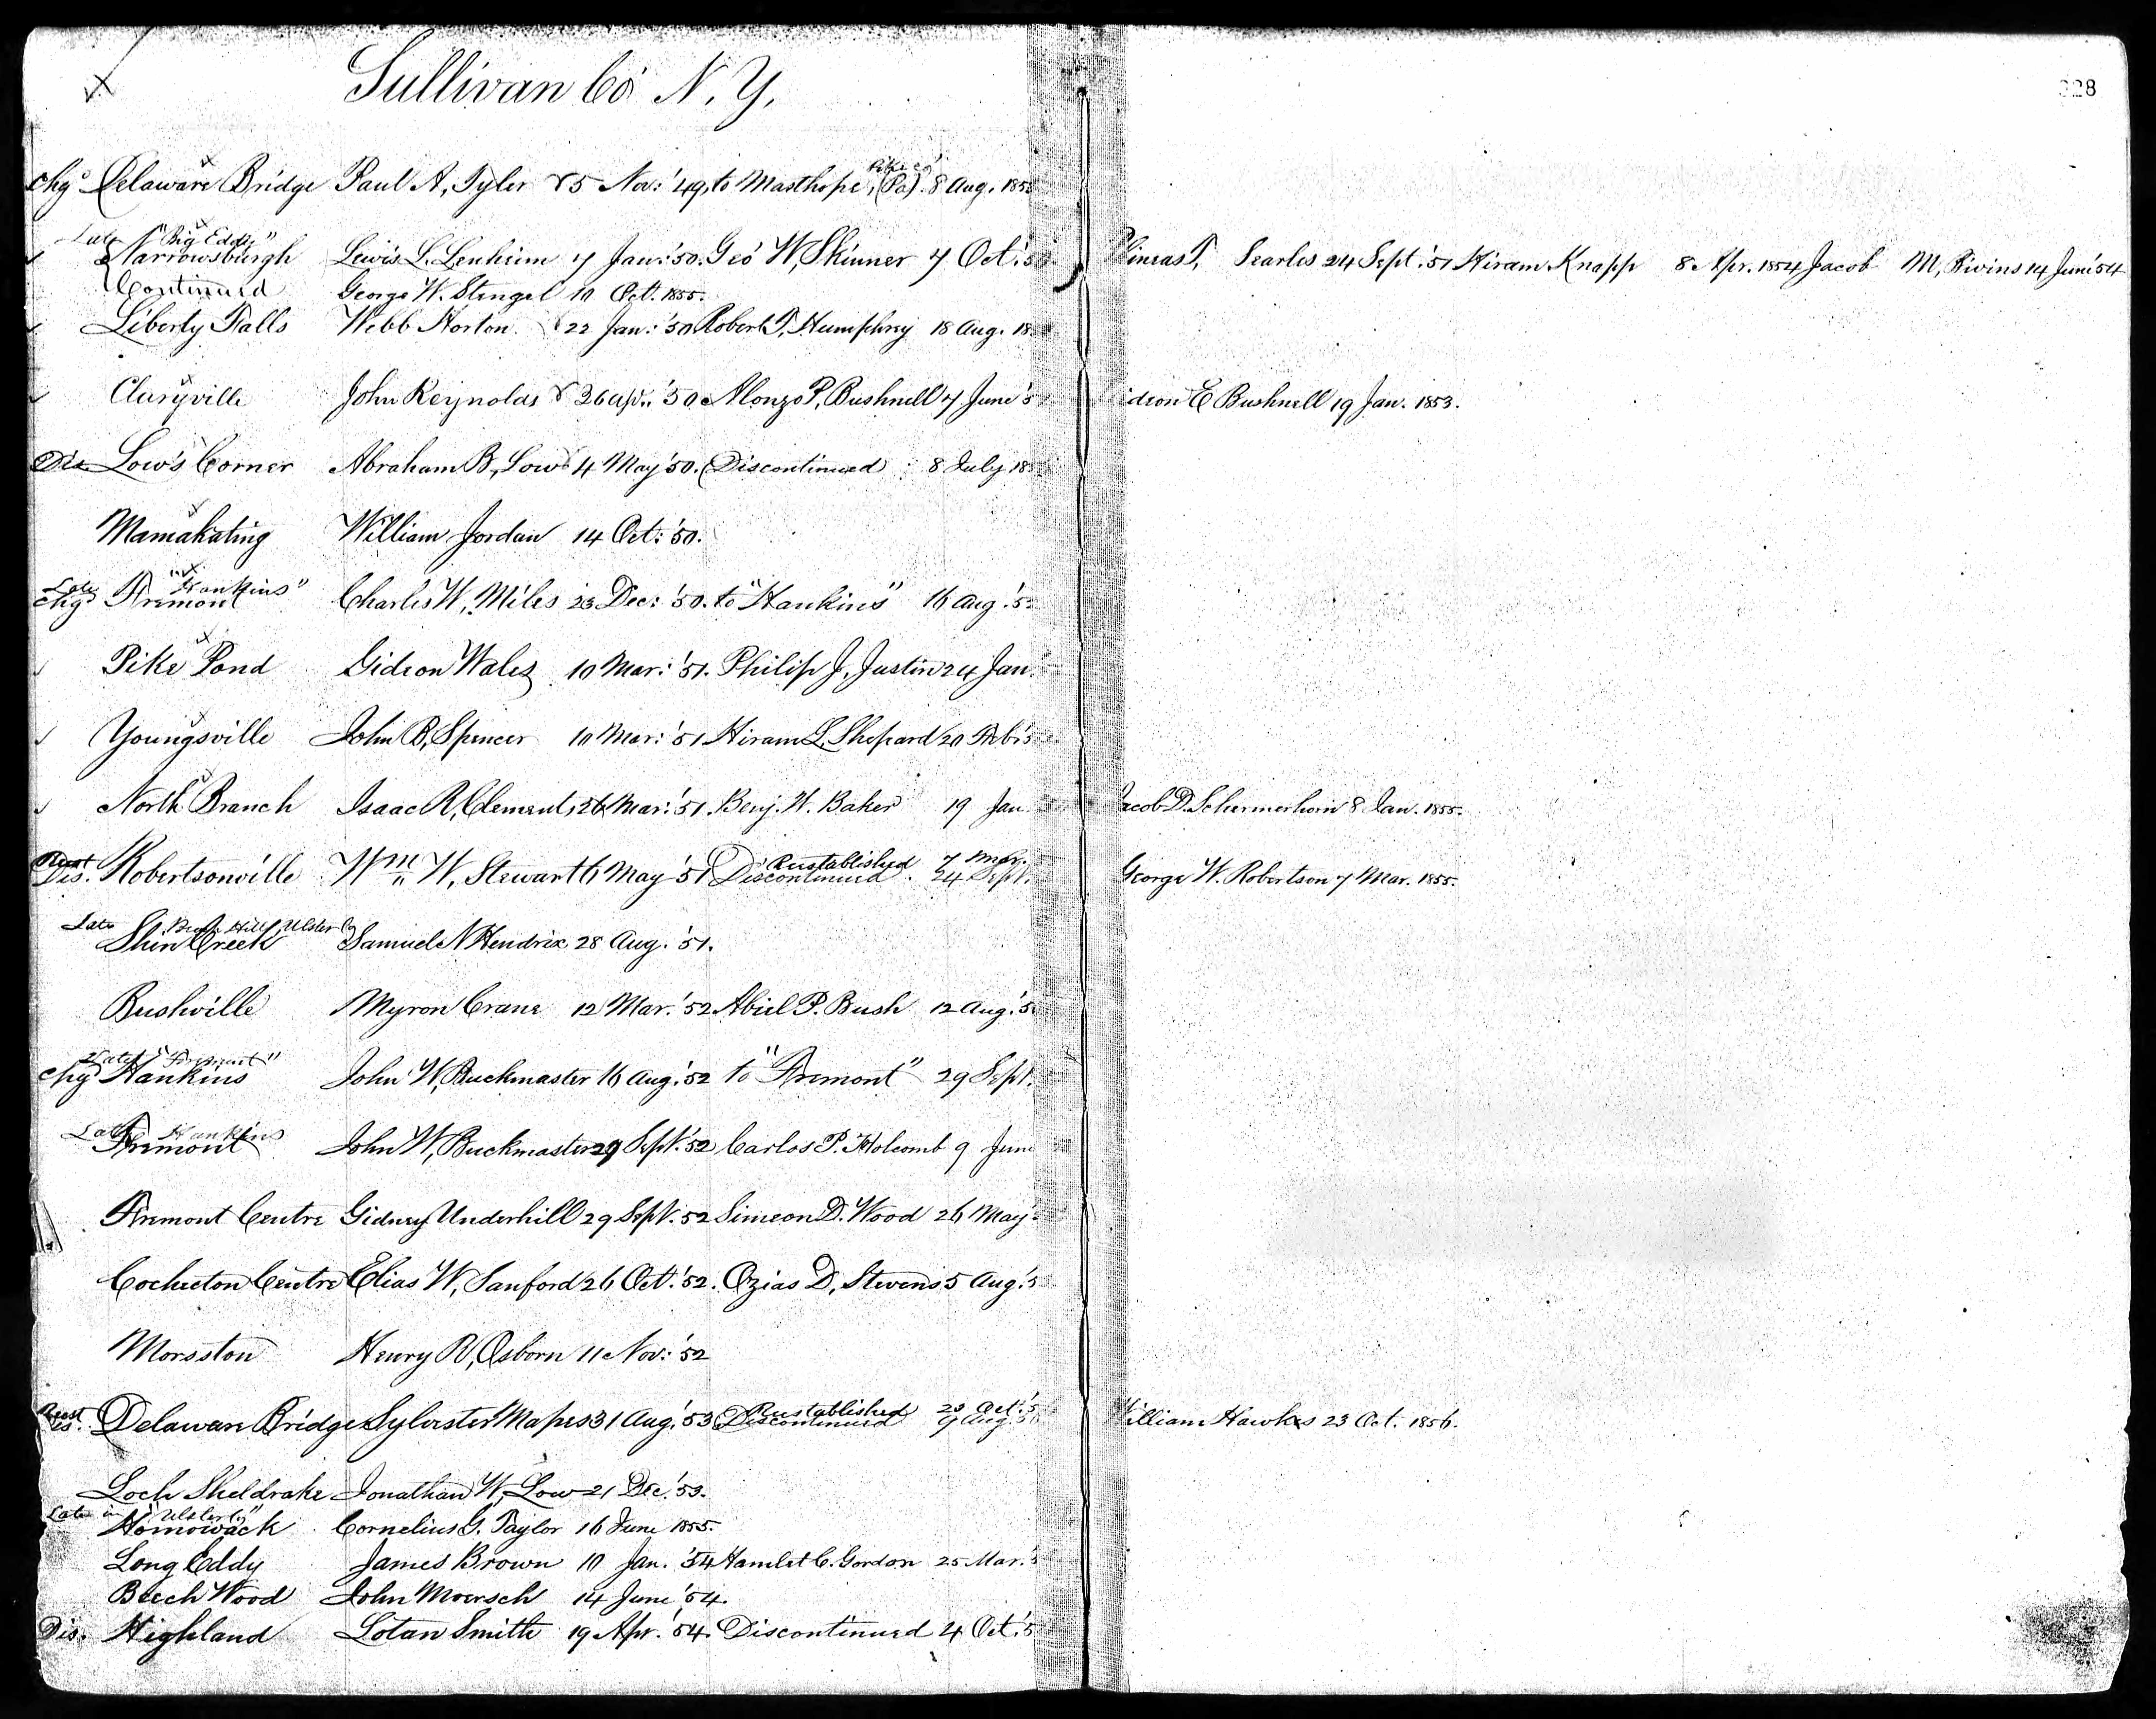 Sullivan Co N. Y.
328
Pike Co
chgd Delaware Bridge Paul A, Tyler 5 Nov: '49, to Masthope, (Pa). 8 Aug. 185
Late "Big Eddy"
Narrowsburgh Lewis L. Lenheim 7 Jan: '50. Geo W, Skinner 7 Oct: '5 hineas T, Searles 24 Sept. '51 Hiram Knapp 8 Apr. 1854 Jacob M, Bivins 14 June '54
Continued George W. Stengel 10 Oct. 1855.
Liberty Falls Webb Horton 22 Jan: '50 Robert T, Humphrey 18 Aug. 18
Claryville John Reynolds 26 Apr: '50. Alonzo P, Bushnell 7 June '5 ideon E Bushnell 19 Jan. 1853.
Dis Low's Corner Abraham B, Low 4 May '50. Discontinued 8 July 18
Mamakating William Jordan 14 Oct: '50.
Late "Hankins"
chgd Fremont Charles W, Miles 23 Dec: '50. to "Hankins" 16 Aug. '5
Pike Pond Gideon Wales 10 Mar: '51. Philip J, Justin 24 Jan.
Youngsville John B, Spencer 10 Mar: '51 Hiram L, Shepard 20 Feb '5
North Branch Isaac R, Clements 26 Mar: '51. Benj. H. Baker 19 Jan acob D. Schermerhorn 8 Jan. 1855.
Reest Reestablished 7 Mar.
Dis. Robertsonville Wm W, Stewart 6 May '51 Discontinued 24 Sept. George W. Robertson 7 Mar. 1855.
Late Hill, Ulster Co
Shin Creek Samuel N Hendrix 28 Aug. '51.
Bushville Myron Crane 12 Mar. '52 Abiel P. Bush 12 Aug. '5
Late "Fremont"
chgd Hankins John W, Buckmaster 16 Aug. '52 to "Fremont" 29 Sept.
Late Hankins
Fremont John W, Buckmaster 29 Sept. '52 Carlos P. Holcomb 9 June
Fremont Centre Gidney Underhill 29 Sept. '52 Simeon D. Wood 26 May
Cochecton Centre Elias W, Sanford 26 Oct. '52. Ozias D, Stevens 5 Aug. '5
Morsston Henry R, Osborn 11 Nov: '52
Reest Reestablished 23 Oct. '5
Dis. Delaware Bridge Sylvester Mapes 31 Aug. '53 Discontinued 9 Aug. '5 illiam Hawkes 23 Oct. 1856.
Loch Sheldrake Jonathan W, Low 21 Dec. '53.
Late in "Ulster Co"
Homowack Cornelius G. Taylor 16 June 1855.
Long Eddy James Brown 10 Jan. '54 Hamlet C. Gordon 25 Mar. '5
Beech Wood John Moersch 14 June '54.
Dis. Highland Lotan Smith 19 Apr. '54. Discontinued 4 Oct. '5